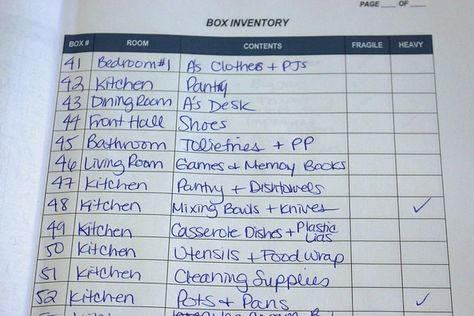 PAGE ___ OF ___
BOX INVENTORY
BOX # ROOM CONTENTS FRAGILE HEAVY
41 Bedroom #1 A's Clothes + PJs
42 Kitchen Pantry
43 Dining Room A's Desk
44 Front Hall Shoes
45 Bathroom Toiletries + PP
46 Living Room Games + Memory Books
47 Kitchen Pantry + Dishtowels
48 Kitchen Mixing Bowls + Knives ✓
49 Kitchen Casserole Dishes + Plastic Lids
50 Kitchen Utensils + Food Wrap
51 Kitchen Cleaning Supplies
52 Kitchen Pots + Pans ✓